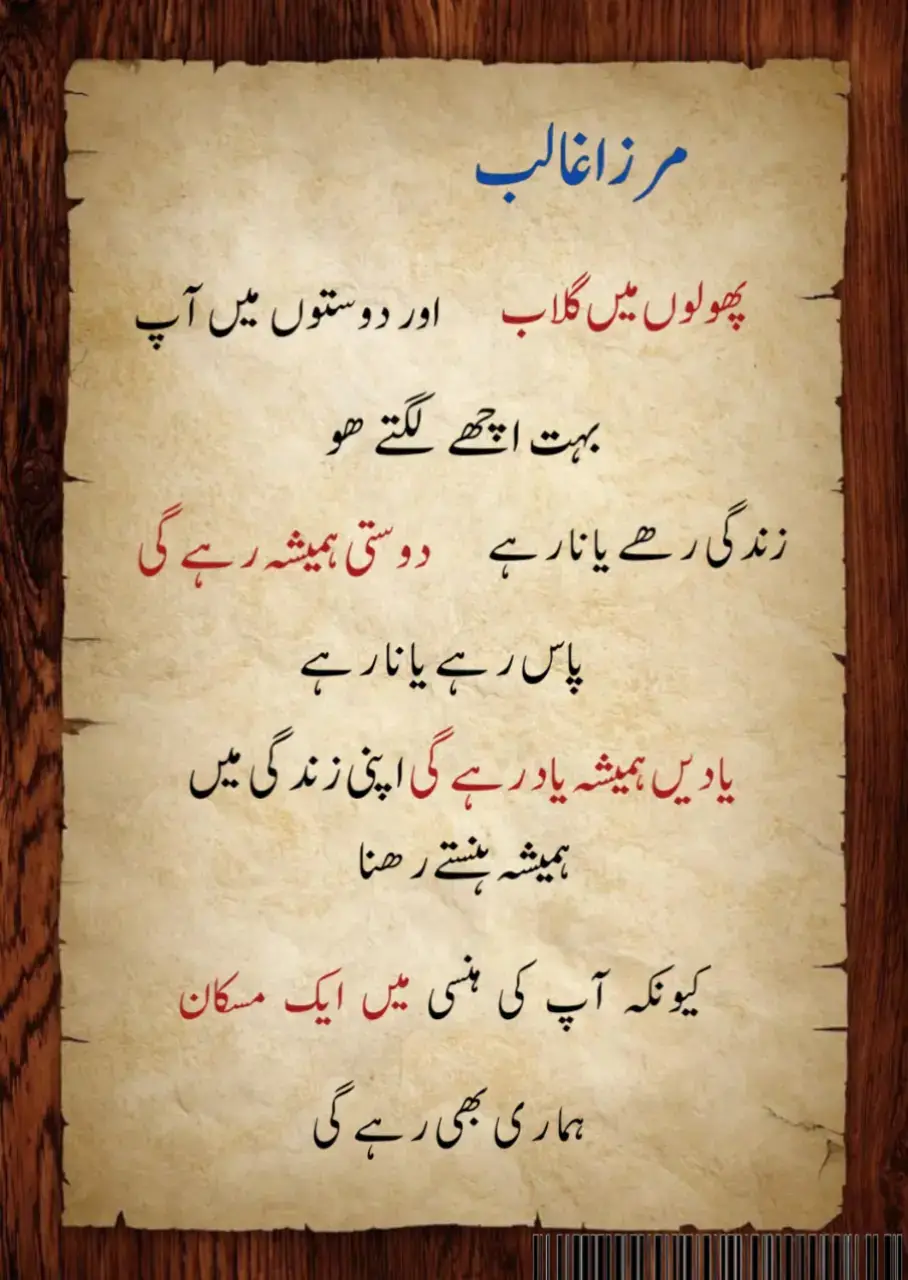 مرزا غالب
پھولوں میں گلاب اور دوستوں میں آپ
بہت اچھے لگتے ھو
زندگی رھے یا نا رہے دوستی ہمیشہ رہے گی
پاس رہے یا نا رہے
یادیں ہمیشہ یاد رہے گی اپنی زندگی میں
ہمیشہ ہنستے رھنا
کیونکہ آپ کی ہنسی میں ایک مسکان
ہماری بھی رہے گی